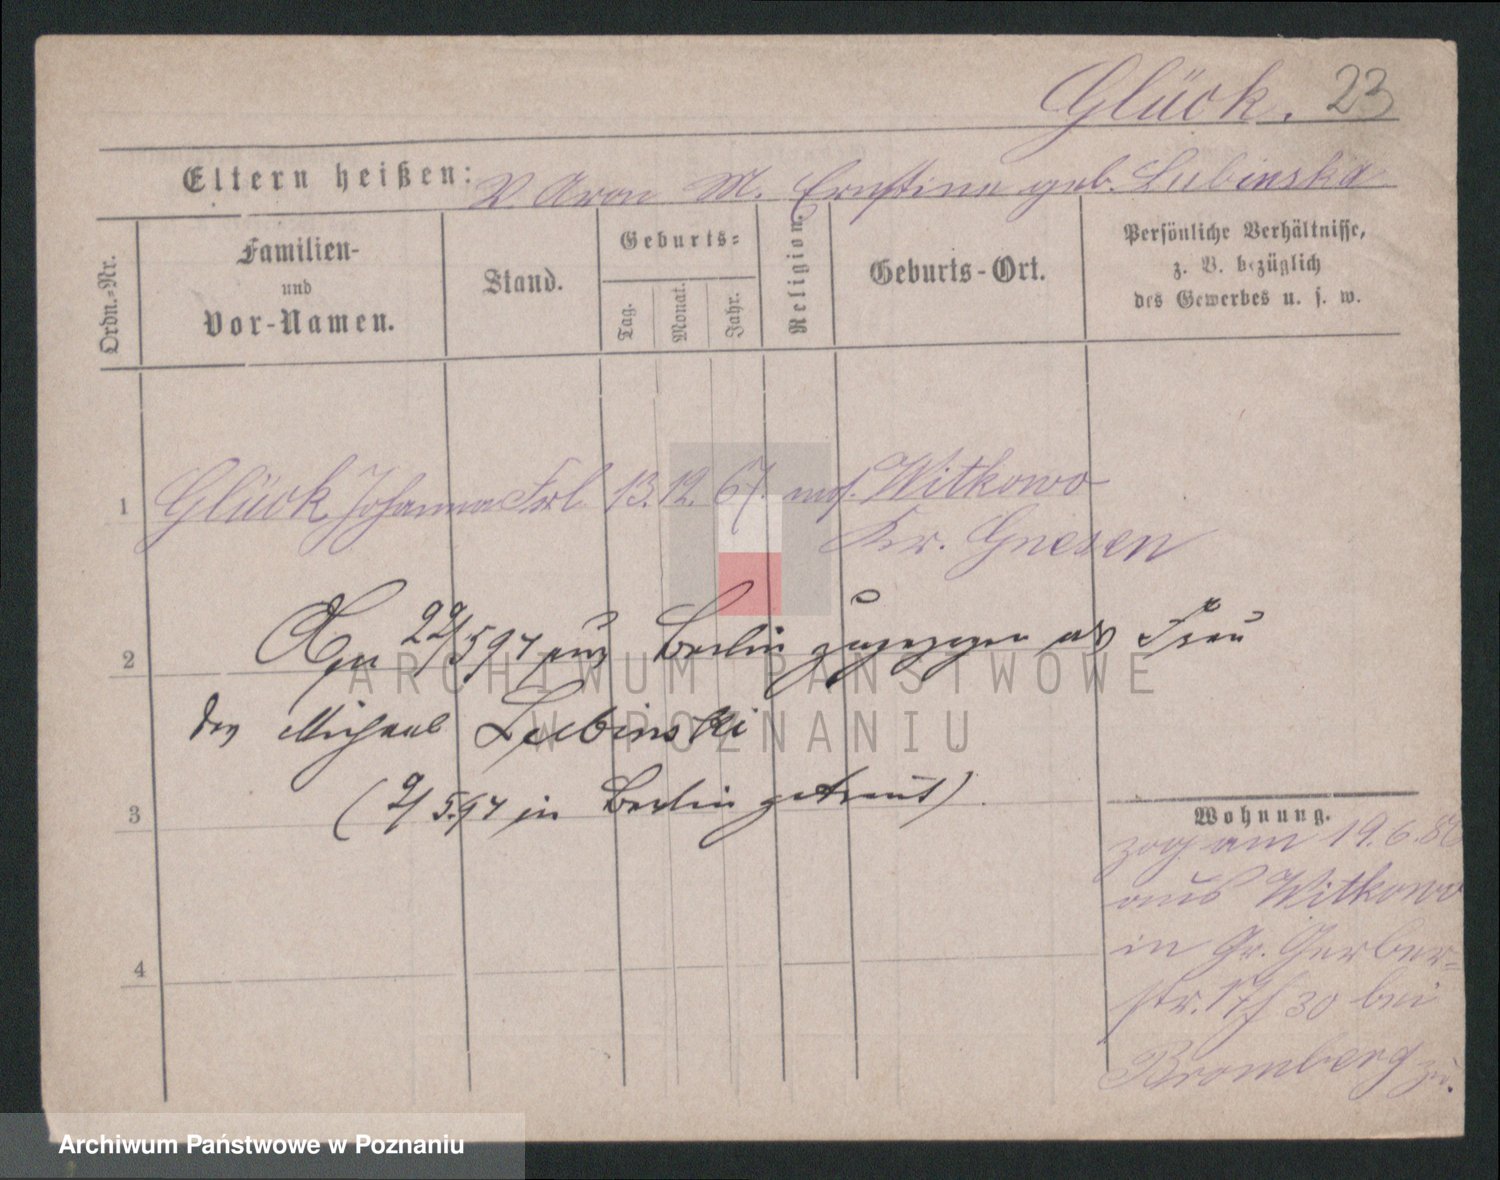 Glück. 23
Eltern heißen: V. Aron M. Ernstine geb. Lubinska
Ordn.-Nr.
Familien-
und
Vor-Namen.
Stand.
Geburts-
Tag.
Monat.
Jahr.
Religion.
Geburts-Ort.
Persönliche Verhältnisse,
z. B. bezüglich
des Gewerbes u. s. w.
1 Glück Johanna Frl. 13. 12. 67. mos. Witkowo
Kr. Gnesen
2 Am 22/5 97 aus Berlin zugezogen als Frau
des Michael Lubinski
3 (9/5.97 in Berlin getraut)
4
Wohnung.
zog am 19.6.86
aus Witkowo
in Gr. Gerber-
str. 17/30 bei
Bromberg zu.
ARCHIWUM PAŃSTWOWE
W POZNANIU
Archiwum Państwowe w Poznaniu